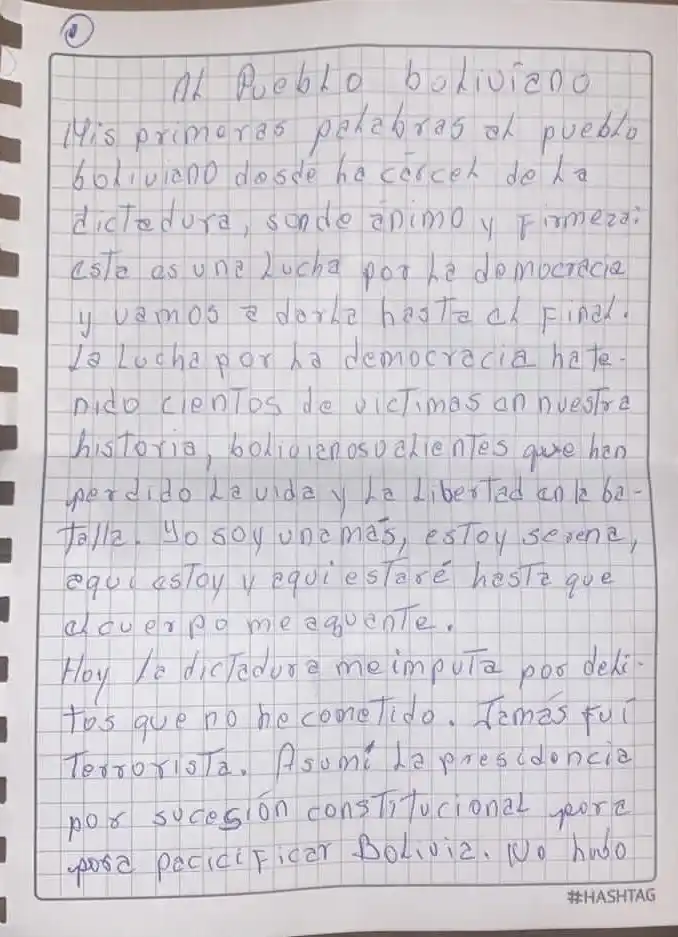 1
Al Pueblo boliviano
Mis primeras palabras al pueblo
boliviano desde la cárcel de la
dictadura, son de ánimo y firmeza:
esta es una lucha por la democracia
y vamos a darla hasta el final.
La lucha por la democracia ha te-
nido cientos de victimas en nuestra
historia, bolivianos valientes que han
perdido la vida y la libertad en la ba-
talla. Yo soy una más, estoy serena,
aqui estoy y aqui estaré hasta que
el cuerpo me aguante.
Hoy la dictadura me imputa por deli-
tos que no he cometido. Jamás fui
terrorista. Asumí la presidencia
por sucesión constitucional para
para pacicificar Bolivia. No hubo
#HASHTAG